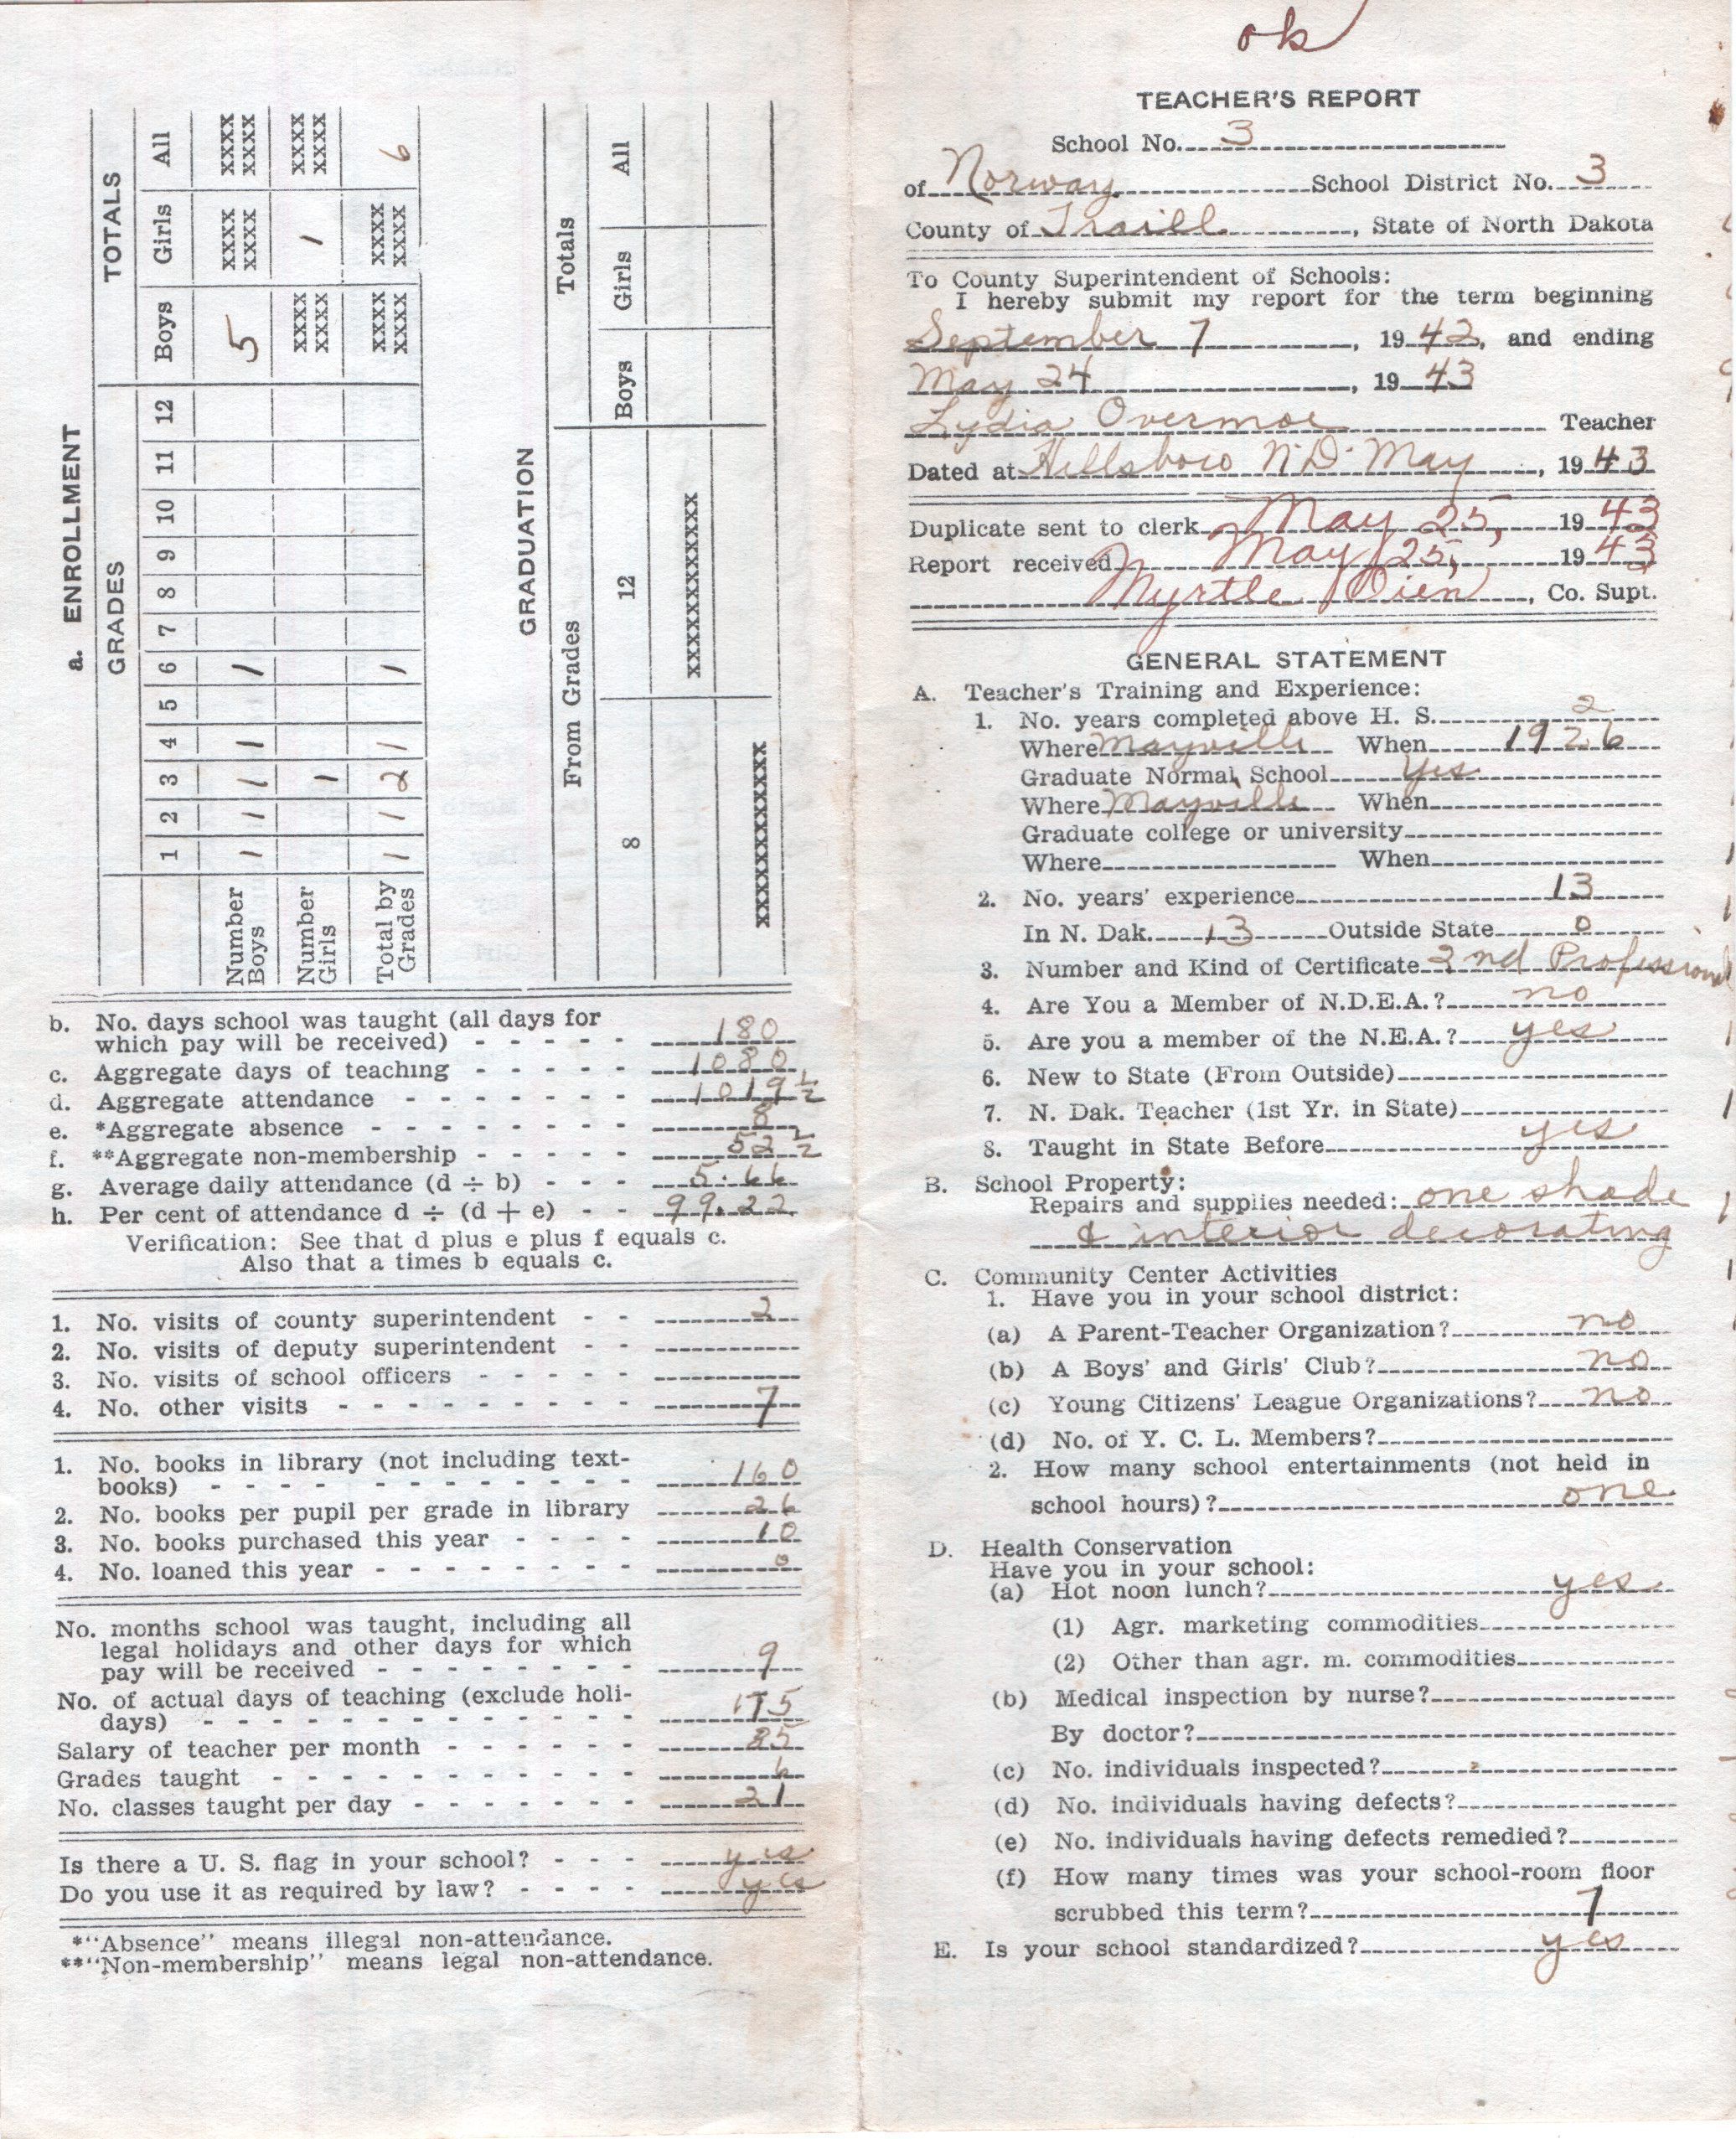 a. ENROLLMENT
GRADES TOTALS
1 2 3 4 5 6 7 8 9 10 11 12 Boys Girls All
Number Boys 1 1 1 1 1 5 xxxx xxxx xxxx xxxx
Number Girls 1 xxxx xxxx 1 xxxx xxxx
Total by Grades 1 1 2 1 1 xxxx xxxx xxxx xxxx 6
GRADUATION
From Grades Totals
8 12 Boys Girls All
xxxxxxxxxxxxx
xxxxxxxxxxxxx
b. No. days school was taught (all days for
which pay will be received) - - - - - 180
c. Aggregate days of teaching - - - - - 1080
d. Aggregate attendance - - - - - - - 1019 1/2
e. *Aggregate absence - - - - - - - - 8
f. **Aggregate non-membership - - - - - 52 1/2
g. Average daily attendance (d ÷ b) - - - 5.66
h. Per cent of attendance d ÷ (d + e) - - 99.22
Verification: See that d plus e plus f equals c.
Also that a times b equals c.
1. No. visits of county superintendent - - 2
2. No. visits of deputy superintendent - -
3. No. visits of school officers - - - - -
4. No. other visits - - - - - - - - - 7
1. No. books in library (not including text-
books) - - - - - - - - - - - 160
2. No. books per pupil per grade in library 26
3. No. books purchased this year - - - - 10
4. No. loaned this year - - - - - - - - 0
No. months school was taught, including all
legal holidays and other days for which
pay will be received - - - - - - - - 9
No. of actual days of teaching (exclude holi-
days) - - - - - - - - - - - - - 175
Salary of teacher per month - - - - - - 85
Grades taught - - - - - - - - - - - 6
No. classes taught per day - - - - - - - 21
Is there a U. S. flag in your school? - - - yes
Do you use it as required by law? - - - - yes
*"Absence" means illegal non-attendance.
**"Non-membership" means legal non-attendance.
ok
TEACHER'S REPORT
School No. 3
of Norway School District No. 3
County of Traill, State of North Dakota
To County Superintendent of Schools:
I hereby submit my report for the term beginning
September 7, 1942, and ending
May 24, 1943
Lydia Overmoe Teacher
Dated at Hillsboro N.D. May, 1943
Duplicate sent to clerk May 25, 1943
Report received May 25, 1943
Myrtle Oien, Co. Supt.
GENERAL STATEMENT
A. Teacher's Training and Experience:
1. No. years completed above H. S. 2
Where Mayville When 1926
Graduate Normal School yes
Where Mayville When
Graduate college or university
Where When
2. No. years' experience 13
In N. Dak. 13 Outside State 0
3. Number and Kind of Certificate 2nd Professional
4. Are You a Member of N.D.E.A.? no
5. Are you a member of the N.E.A.? yes
6. New to State (From Outside)
7. N. Dak. Teacher (1st Yr. in State)
8. Taught in State Before yes
B. School Property:
Repairs and supplies needed: one shade
& interior decorating
C. Community Center Activities
1. Have you in your school district:
(a) A Parent-Teacher Organization? no
(b) A Boys' and Girls' Club? no
(c) Young Citizens' League Organizations? no
(d) No. of Y. C. L. Members?
2. How many school entertainments (not held in
school hours)? one
D. Health Conservation
Have you in your school:
(a) Hot noon lunch? yes
(1) Agr. marketing commodities
(2) Other than agr. m. commodities
(b) Medical inspection by nurse?
By doctor?
(c) No. individuals inspected?
(d) No. individuals having defects?
(e) No. individuals having defects remedied?
(f) How many times was your school-room floor
scrubbed this term? 7
E. Is your school standardized? yes